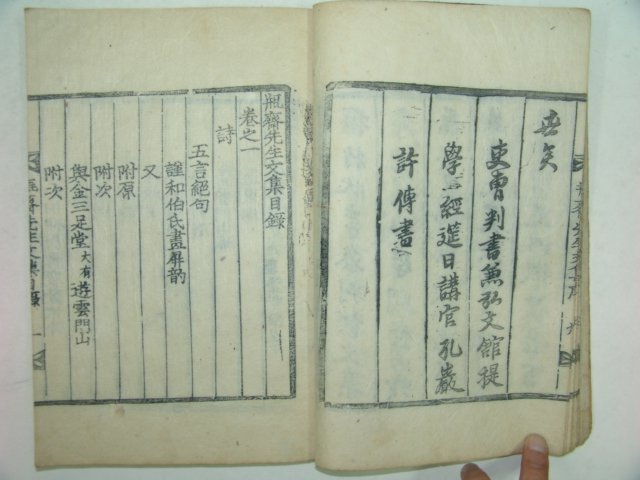 矣
吏曹判書兼弘文館提
學 經筵日講官孔巖
許傳書
瓶齋先生文集目錄
卷之一
詩
五言絕句
謹和伯氏畫屛韵
又
附原
附次
與金三足堂大有遊雲門山
附次
瓶齋先生文集目錄 一